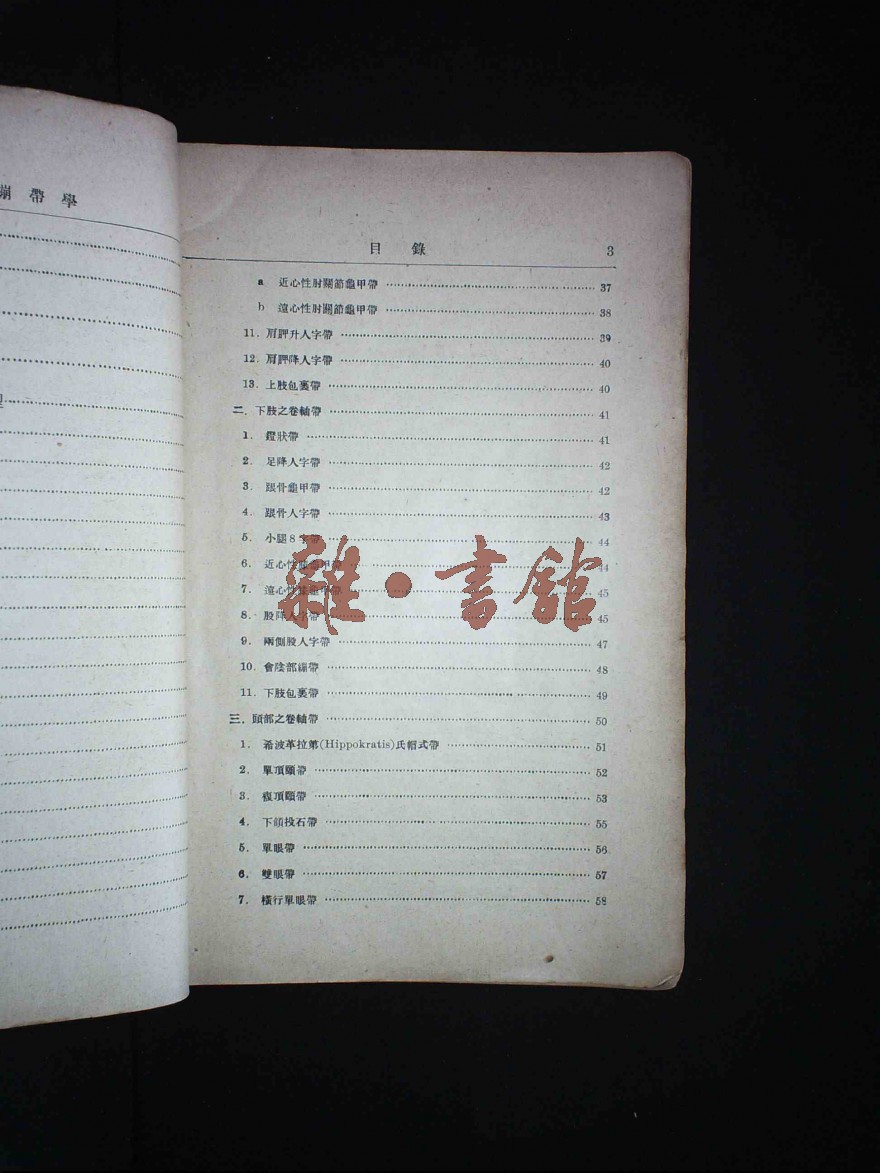 繃帶學
目錄 3
a 近心性肘關節龜甲帶 37
b 遠心性肘關節龜甲帶 38
11. 肩胛升人字帶 39
12. 肩胛降人字帶 40
13. 上肢包裹帶 40
二. 下肢之卷軸帶 41
1. 鐙狀帶 41
2. 足降人字帶 42
3. 跟骨龜甲帶 42
4. 跟骨人字帶 43
5. 小腿8字帶 44
6. 近心性膝龜甲帶 44
7. 遠心性膝龜甲帶 45
8. 股降人字帶 45
9. 兩側股人字帶 47
10. 會陰部繃帶 48
11. 下肢包裹帶 49
三. 頭部之卷軸帶 50
1. 希波革拉第(Hippokratis)氏帽式帶 51
2. 單項頤帶 52
3. 複項頤帶 53
4. 下頷投石帶 55
5. 單眼帶 56
6. 雙眼帶 57
7. 橫行單眼帶 58
雜·書館